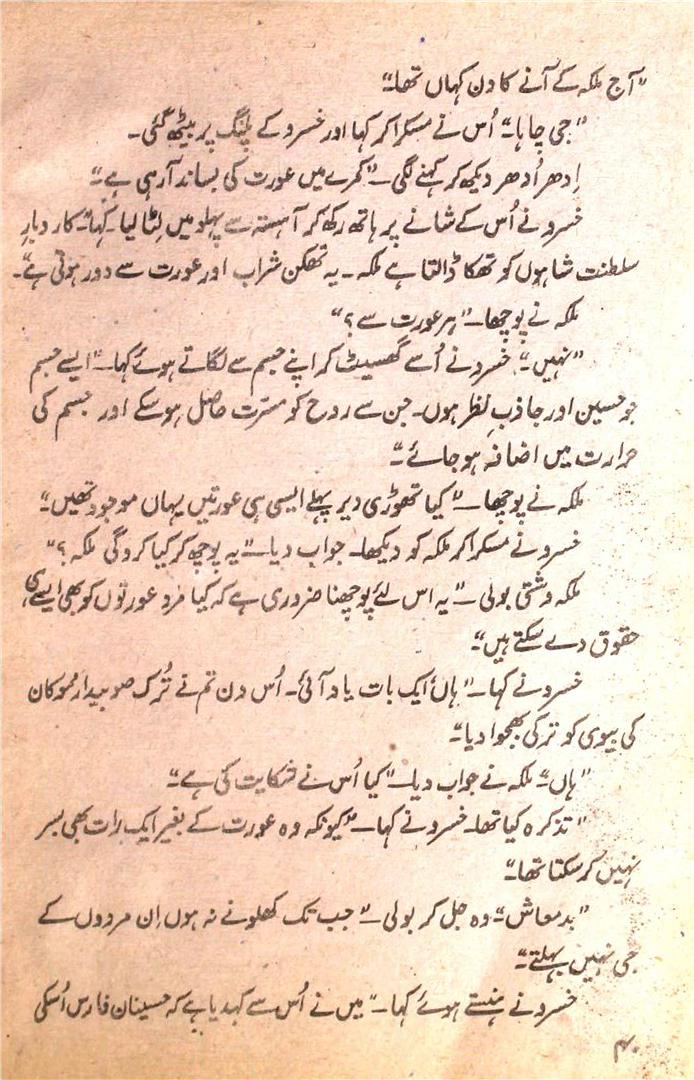 "آج ملکہ کے آنے کا دن کہاں تھا۔"
"جی چاہا۔" اُس نے مسکرا کر کہا اور خسرو کے پلنگ پر بیٹھ گئی۔
اِدھر اُدھر دیکھ کر کہنے لگی۔ "کمرے میں عورت کی بساند آرہی ہے۔"
خسرو نے اُس کے شانے پر ہاتھ رکھ کر آہستہ سے پہلو میں لِٹا لیا۔ کہا۔ "کاروبارِ
سلطنت شاہوں کو تھکا ڈالتا ہے ملکہ۔ یہ تھکن شراب اور عورت سے دور ہوتی ہے۔"
ملکہ نے پوچھا۔ "ہر عورت سے؟"
"نہیں۔" خسرو نے اُسے گھسیٹ کر اپنے جسم سے لگاتے ہوئے کہا۔ "ایسے جسم
جو حسین اور جاذبِ نظر ہوں۔ جن سے روح کو مسرّت حاصل ہوسکے اور جسم کی
حرارت میں اضافہ ہو جائے۔"
ملکہ نے پوچھا۔ "کیا تھوڑی دیر پہلے ایسی ہی عورتیں یہاں موجود تھیں۔"
خسرو نے مسکرا کر ملکہ کو دیکھا۔ جواب دیا۔ "یہ پوچھ کر کیا کروگی ملکہ؟"
ملکہ وشتی بولی۔ "یہ اس لئے پوچھنا ضروری ہے کہ کیا مرد عورتوں کو بھی ایسے ہی
حقوق دے سکتے ہیں۔"
خسرو نے کہا۔ "ہاں ایک بات یاد آئی۔ اُس دن تم نے تُرک صوبیدار مموکان
کی بیوی کو ترکی بھجوا دیا۔"
"ہاں۔" ملکہ نے جواب دیا۔ "کیا اُس نے شکایت کی ہے۔"
"تذکرہ کیا تھا۔ خسرو نے کہا۔ "کیونکہ وہ عورت کے بغیر ایک رات بھی بسر
نہیں کرسکتا تھا۔"
"بدمعاش۔" وہ جل کر بولی۔ "جب تک کھلونے نہ ہوں اِن مردوں کے
جی نہیں بہلتے۔"
خسرو نے ہنستے ہوئے کہا۔ "میں نے اُس سے کہدیا ہے کہ حسینانِ فارس اُسکی
۴۰